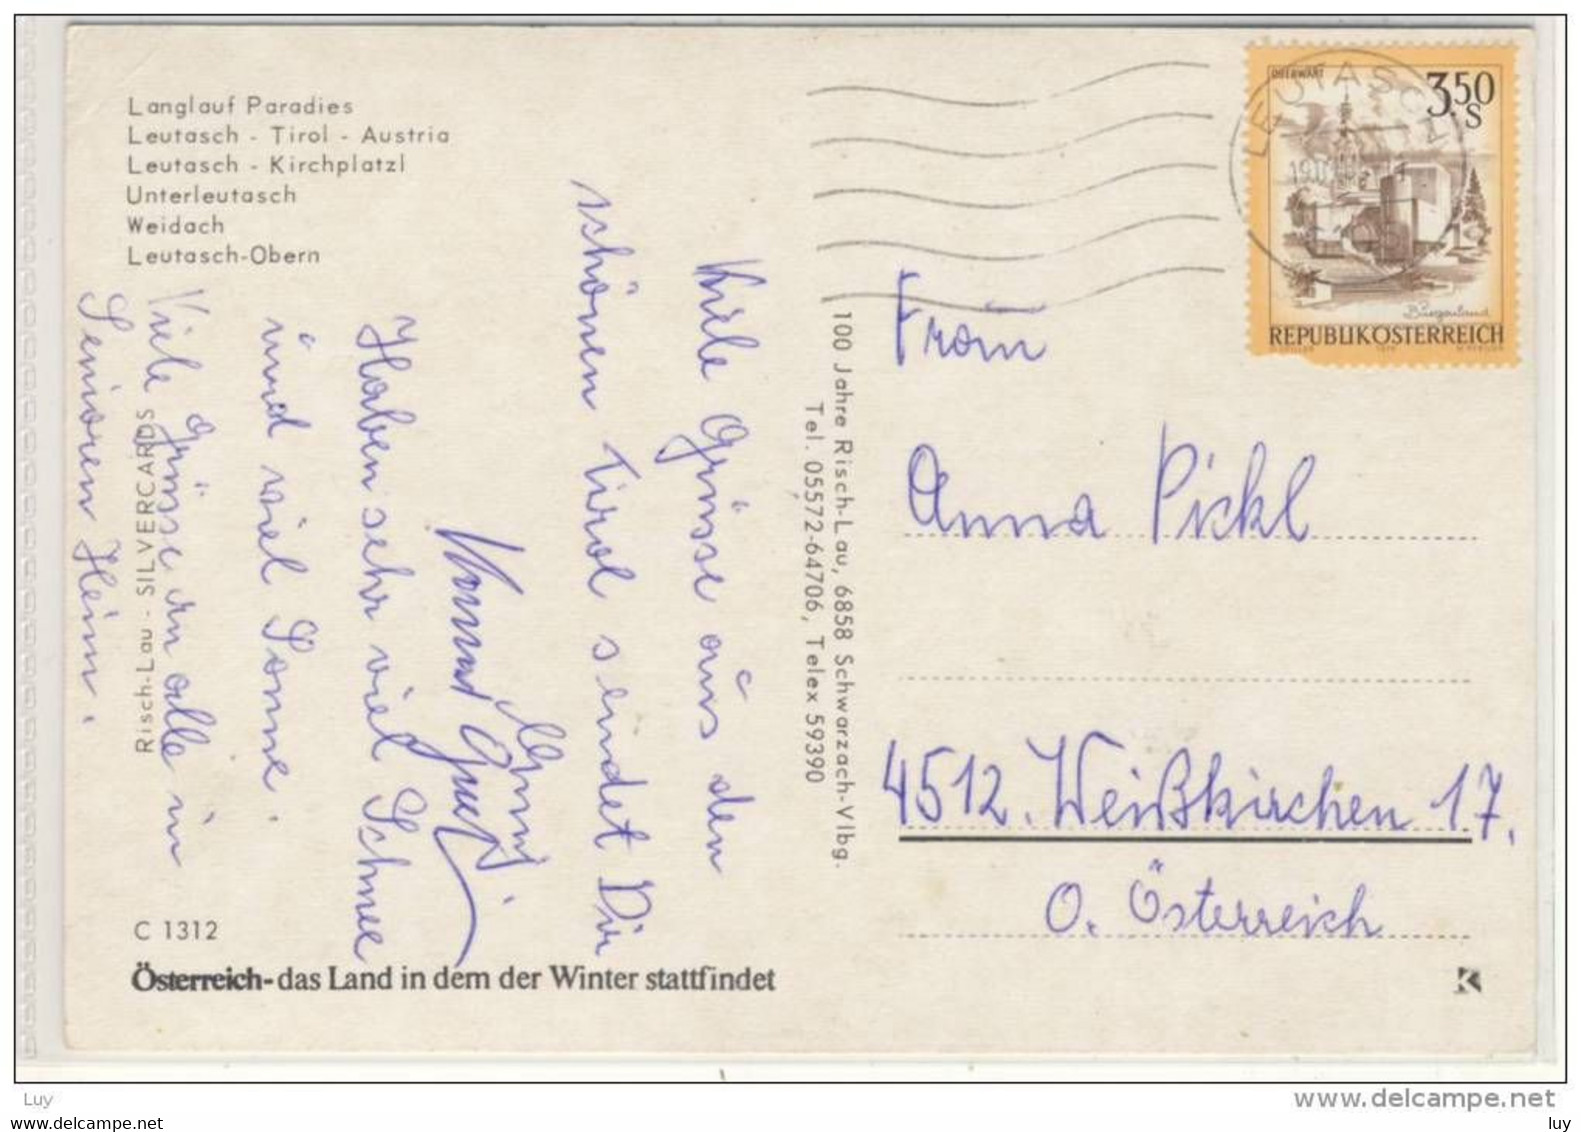 Langlauf Paradies
Leutasch - Tirol - Austria
Leutasch - Kirchplatzl
Unterleutasch
Weidach
Leutasch-Obern
Viele Grüsse aus den
schönen Tirol sendet Dir
Haben sehr viel Schnee
und viel Sonne.
Viele Grüsse an alle im
Senioren Heim.
Risch-Lau - SILVERCARDS
C 1312
Österreich-das Land in dem der Winter stattfindet
100 Jahre Risch-Lau, 6858 Schwarzach-Vlbg.
Tel. 05572-64706, Telex 59390
LEUTASCH
OBERWART
3.50
S
Burgenland
REPUBLIK ÖSTERREICH
Frau
Anna Pickl
4512. Weißkirchen 17.
O. Österreich
K
Luy
www.delcampe.net
www.delcampe.net
luy